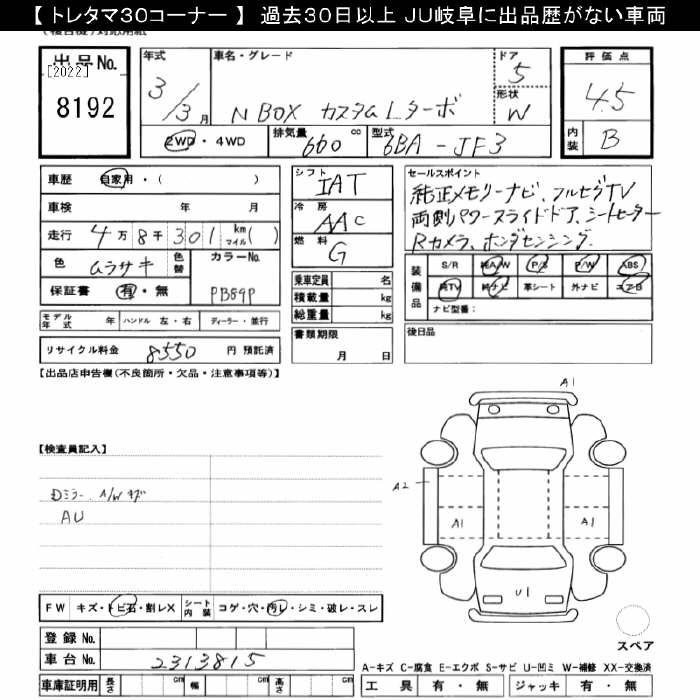 【 トレタマ30コーナー 】 過去30日以上 JU岐阜に出品歴がない車両
出品No.
[2022]
8192
年式
3/3月
車名・グレード
N BOX カスタムLターボ
ドア
5
形状
W
評価点
4.5
内装
B
2WD・4WD
排気量
660 cc
型式
6BA-JF3
車歴
自家用・( )
車検
年 月
走行
4万8千301 km マイル( )
色
ムラサキ
色替
カラーNo.
PB89P
保証書
有・無
シフト
IAT
冷房
AAC
燃料
G
乗車定員 名
積載量 kg
総重量 kg
セールスポイント
純正メモリーナビ、フルセグTV
両側パワースライドドア、シートヒーター
Rカメラ、ホンダセンシング
装備品
S/R 純A/W P/S P/W ABS
純TV 純ナビ 革シート 外ナビ エアB
ナビ型番:
モデル年式 年 ハンドル 左・右 ディーラー・並行
書類期限
月 日
後日品
リサイクル料金 8550 円 預託済
【出品店申告欄(不良箇所・欠品・注意事項等)】
【検査員記入】
Dミラー、A/Wキズ
AU
A1
A2
A1
A1
U1
スペア
FW キズ・トビ石・割レX シート内装 コゲ・穴・汚レ・シミ・破レ・スレ
登録 No.
車台 No. 2313815
A-キズ C-腐食 E-エクボ S-サビ U-凹ミ W-補修 XX-交換済
車庫証明用 長さ cm 幅 cm 高さ cm
工具 有・無 ジャッキ 有・無